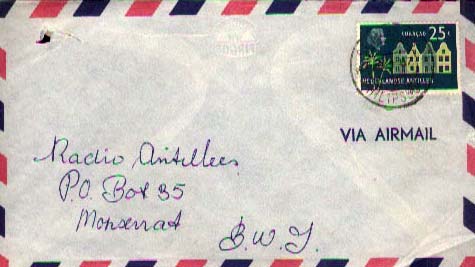 CURAÇAO 25 c
NEDERLANDSE ANTILLEN
VIA AIRMAIL
Radio Antilles
P.O. Box 35
Monserrat
B.W.I.